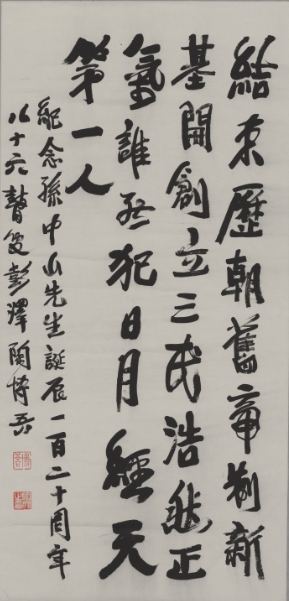 結束歷朝舊帝制新
基開創立三民浩然正
氣誰犯日月經天
第一人
紀念孫中山先生誕辰一百二十周年
八十六瞽叟彭澤陶博吾